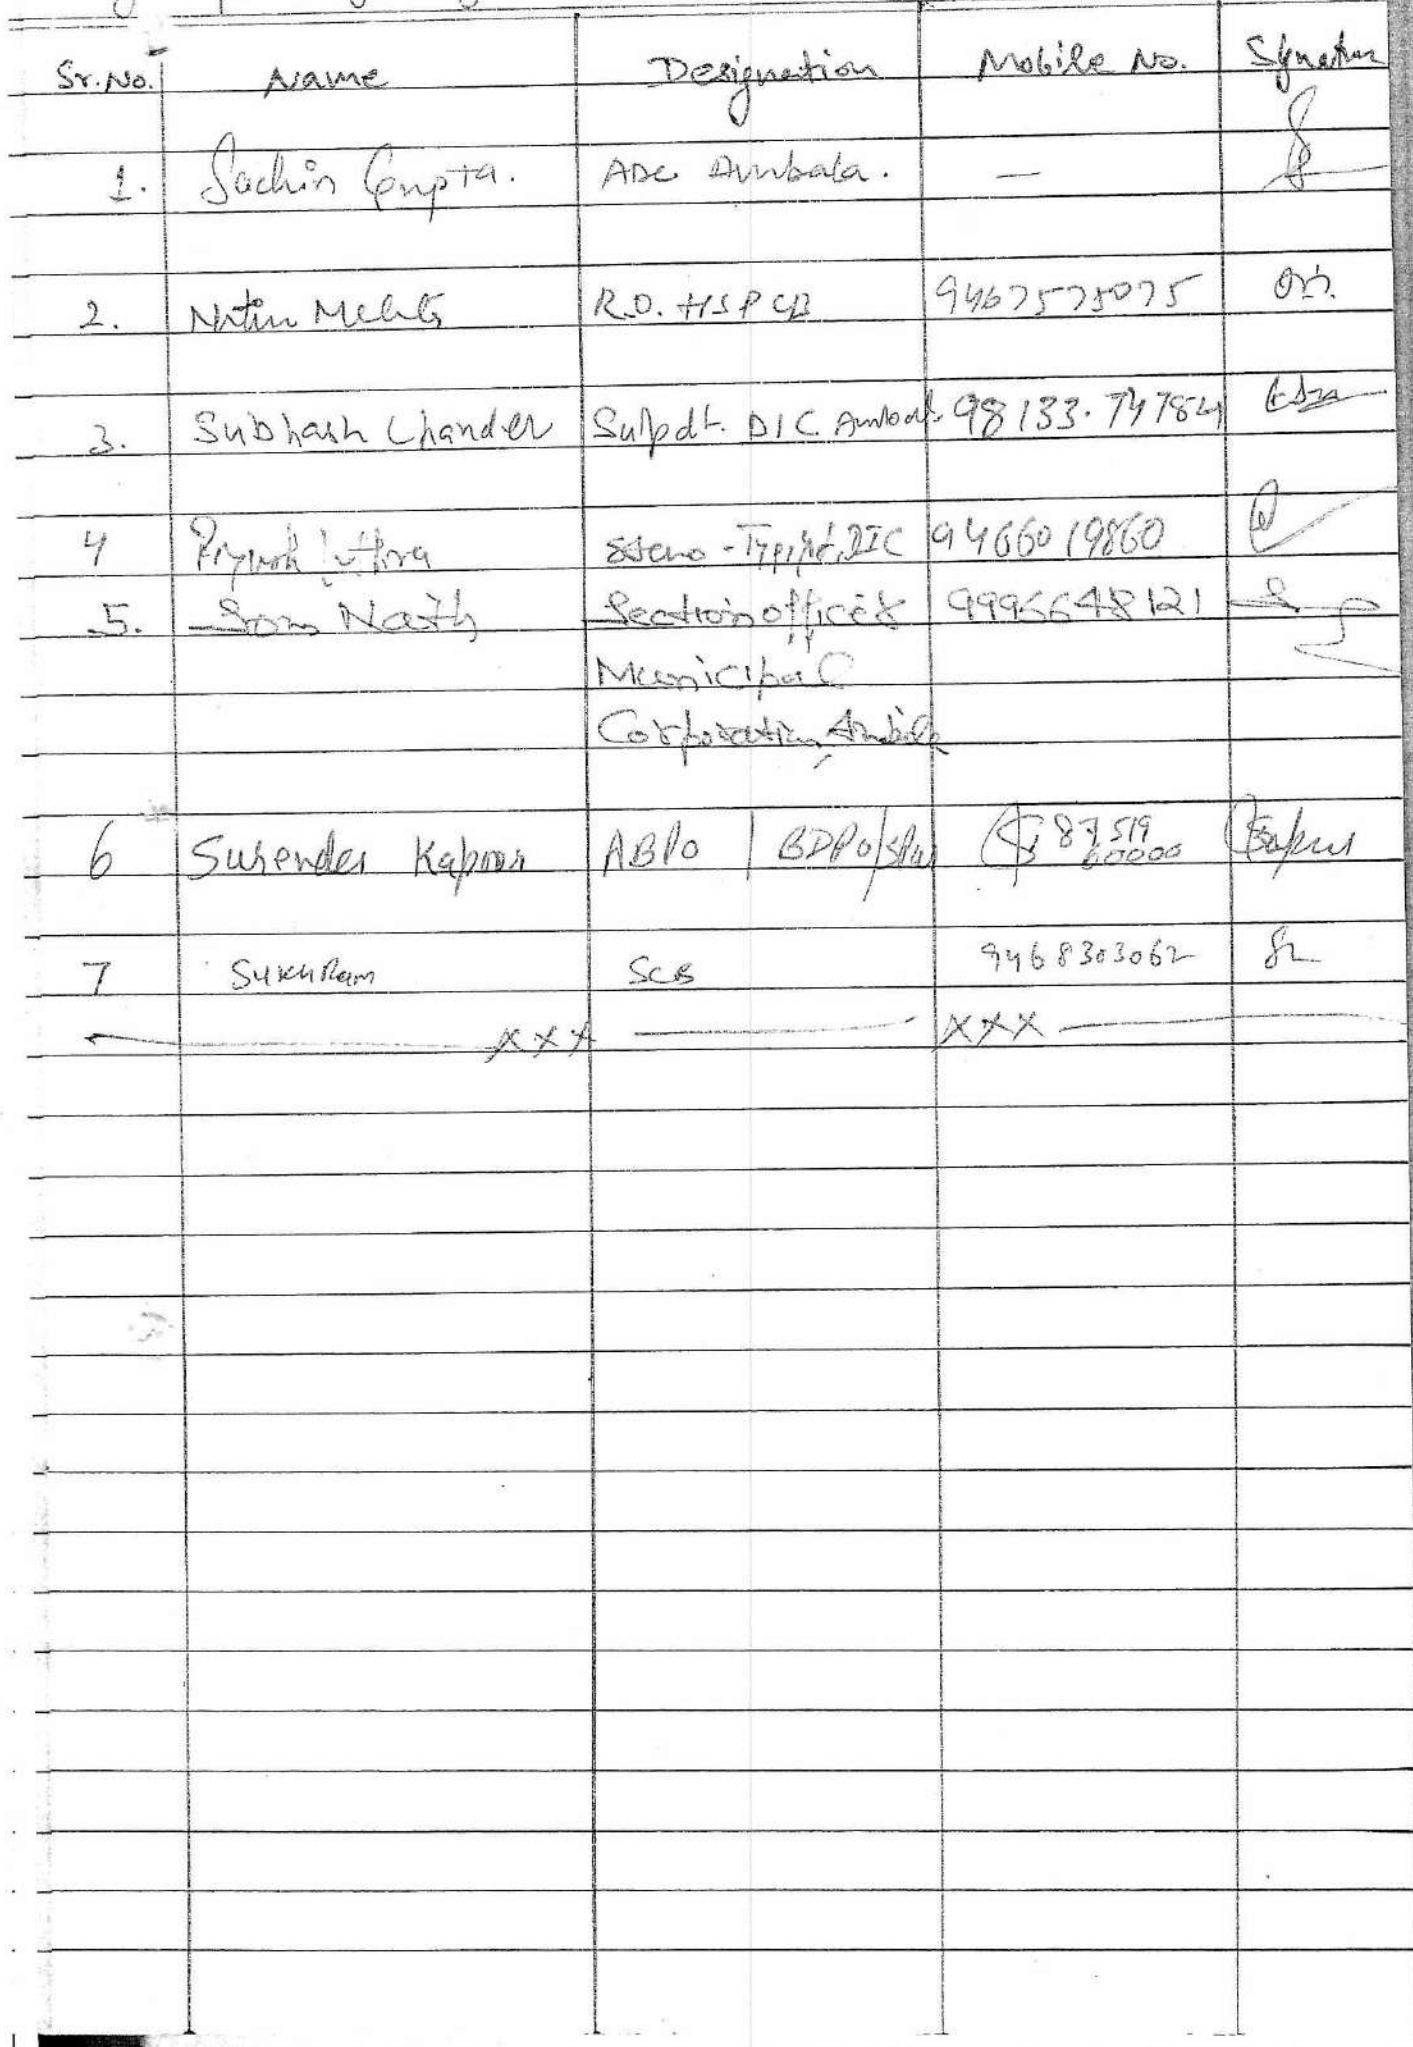 Sr.No. Name Designation Mobile No. Signature
1. Sachin Gupta. ADC Ambala. —
2. Nitin Mehta R.O. HSPCB 9467575075
3. Subhash Chander Supdt. DIC Ambala 98133.74784
4 Piyush Luthra Steno-Typist, DIC 9466019860
5. Som Nath Section officer 9996648121
Municipal
Corporation, Ambala
6 Surender Kapoor ABPO / BDPO/ 87519
60000
7 Sukh Ram SCB 9468303062
xxx xxx